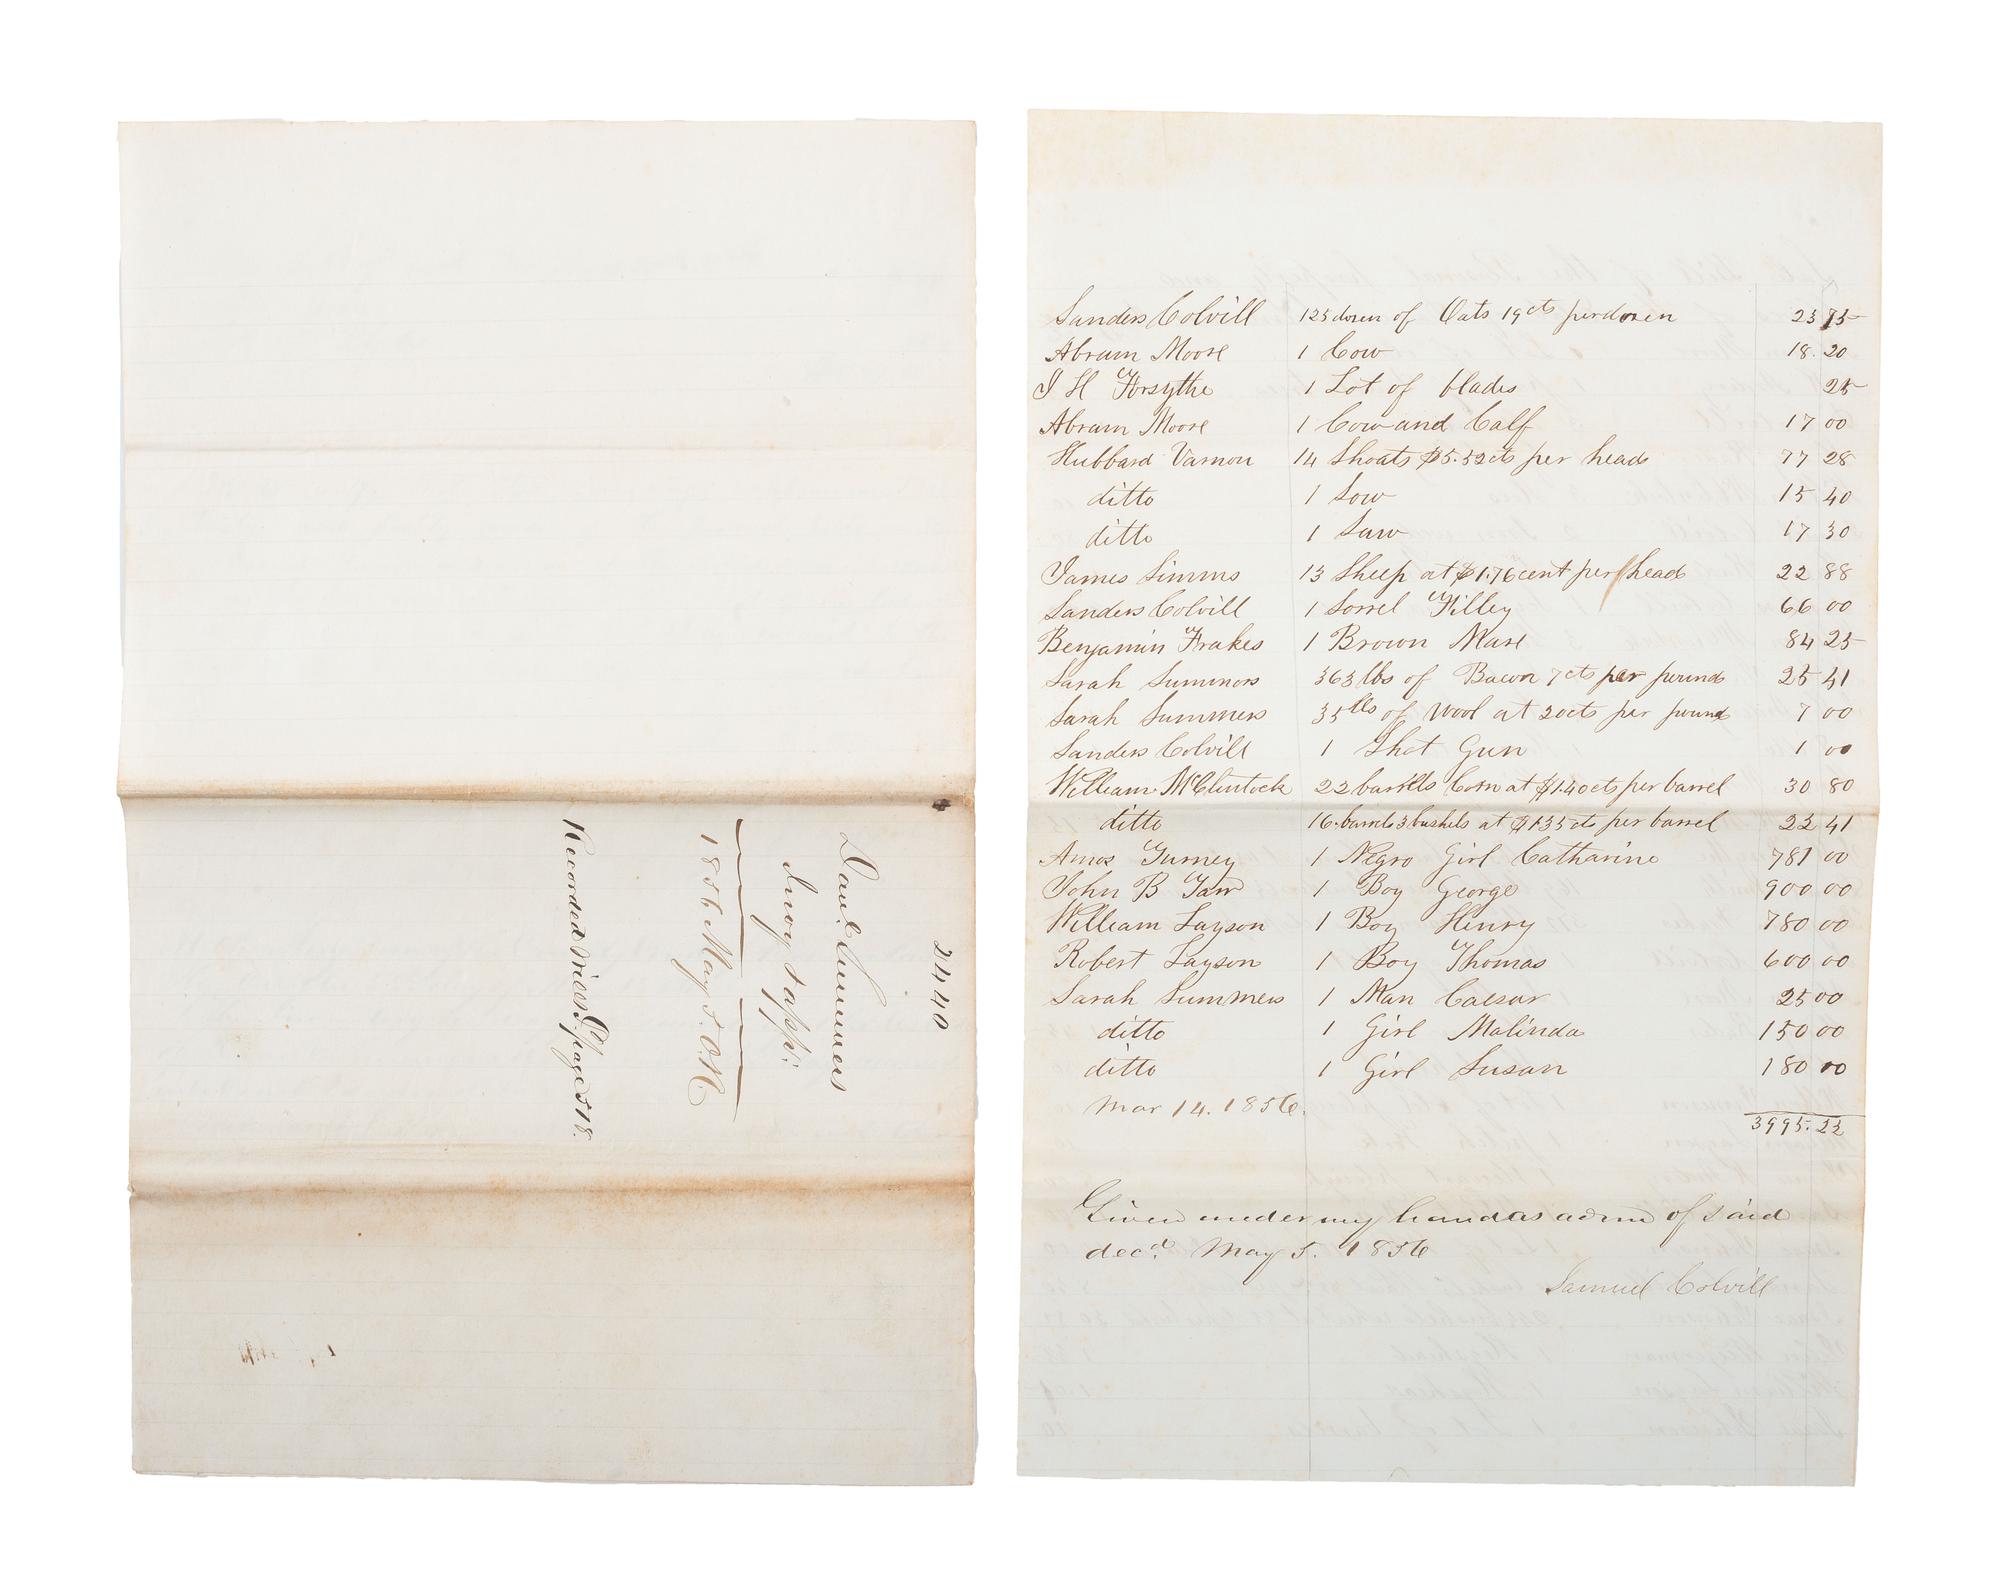 2440
Danl. Summers
Invoy & appr.
1856 May 5. O.R.
Recorded page 518.
Sanders Colvill 125 dozen of Oats 19cts perdozen 23 75
Abram Moore 1 Cow 18. 20
J H Forsythe 1 Lot of blades 25
Abram Moore 1 Cow and Calf 17 00
Hubbard Varnon 14 Shoats $5.52cts per head 77 28
ditto 1 Sow 15 40
ditto 1 Saw 17 30
James Simms 13 Sheep at $1.76 cent per head 22 88
Sanders Colvill 1 Sorrel Filley 66 00
Benjamin Frakes 1 Brown Mare 84 25
Sarah Summers 363 lbs of Bacon 7cts per pound 25 41
Sarah Summers 35 lbs of Wool at 20cts per pound 7 00
Sanders Colvill 1 Shot Gun 1 00
William McClintock 22 barrells Corn at $1.40cts per barrel 30 80
ditto 16 barrels 3 bushels at $1.35 cts per barrel 22 41
Amos Turney 1 Negro Girl Catharine 781 00
John B Tarr 1 Boy George 900 00
William Layson 1 Boy Henry 780 00
Robert Layson 1 Boy Thomas 600 00
Sarah Summers 1 Man Caesar 25 00
ditto 1 Girl Malinda 150 00
ditto 1 Girl Susan 180 00
Mar 14. 1856.
3995.22
Given under my hand as admr of said
decd. May 5. 1856
Samuel Colvill